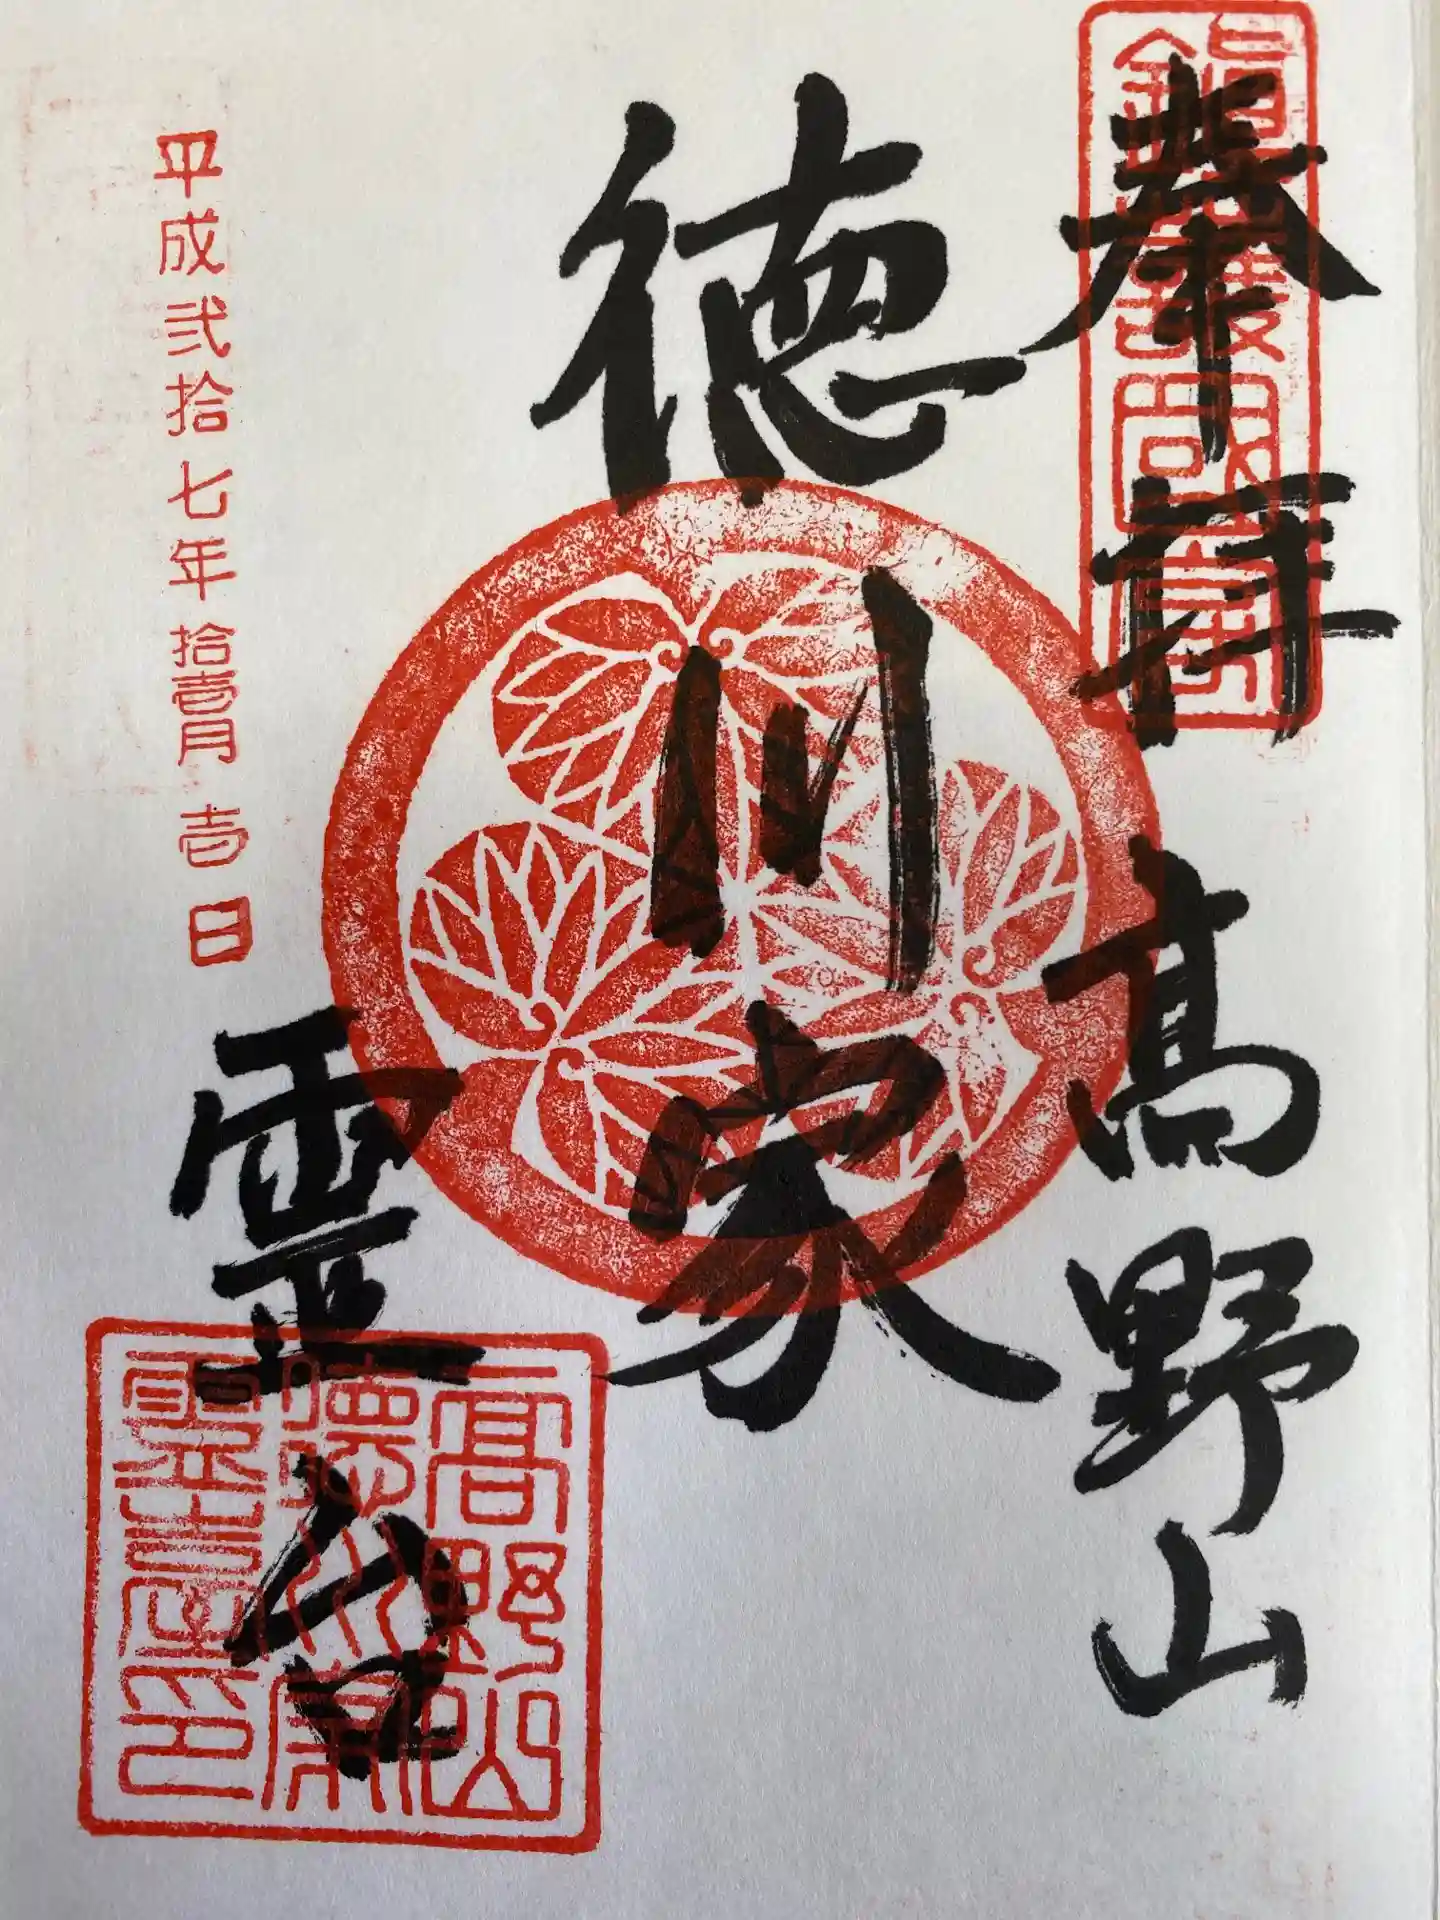 奉拝 高野山
徳川家
霊台
平成弐拾七年拾壹月壱日
高野山
徳川家
霊臺印